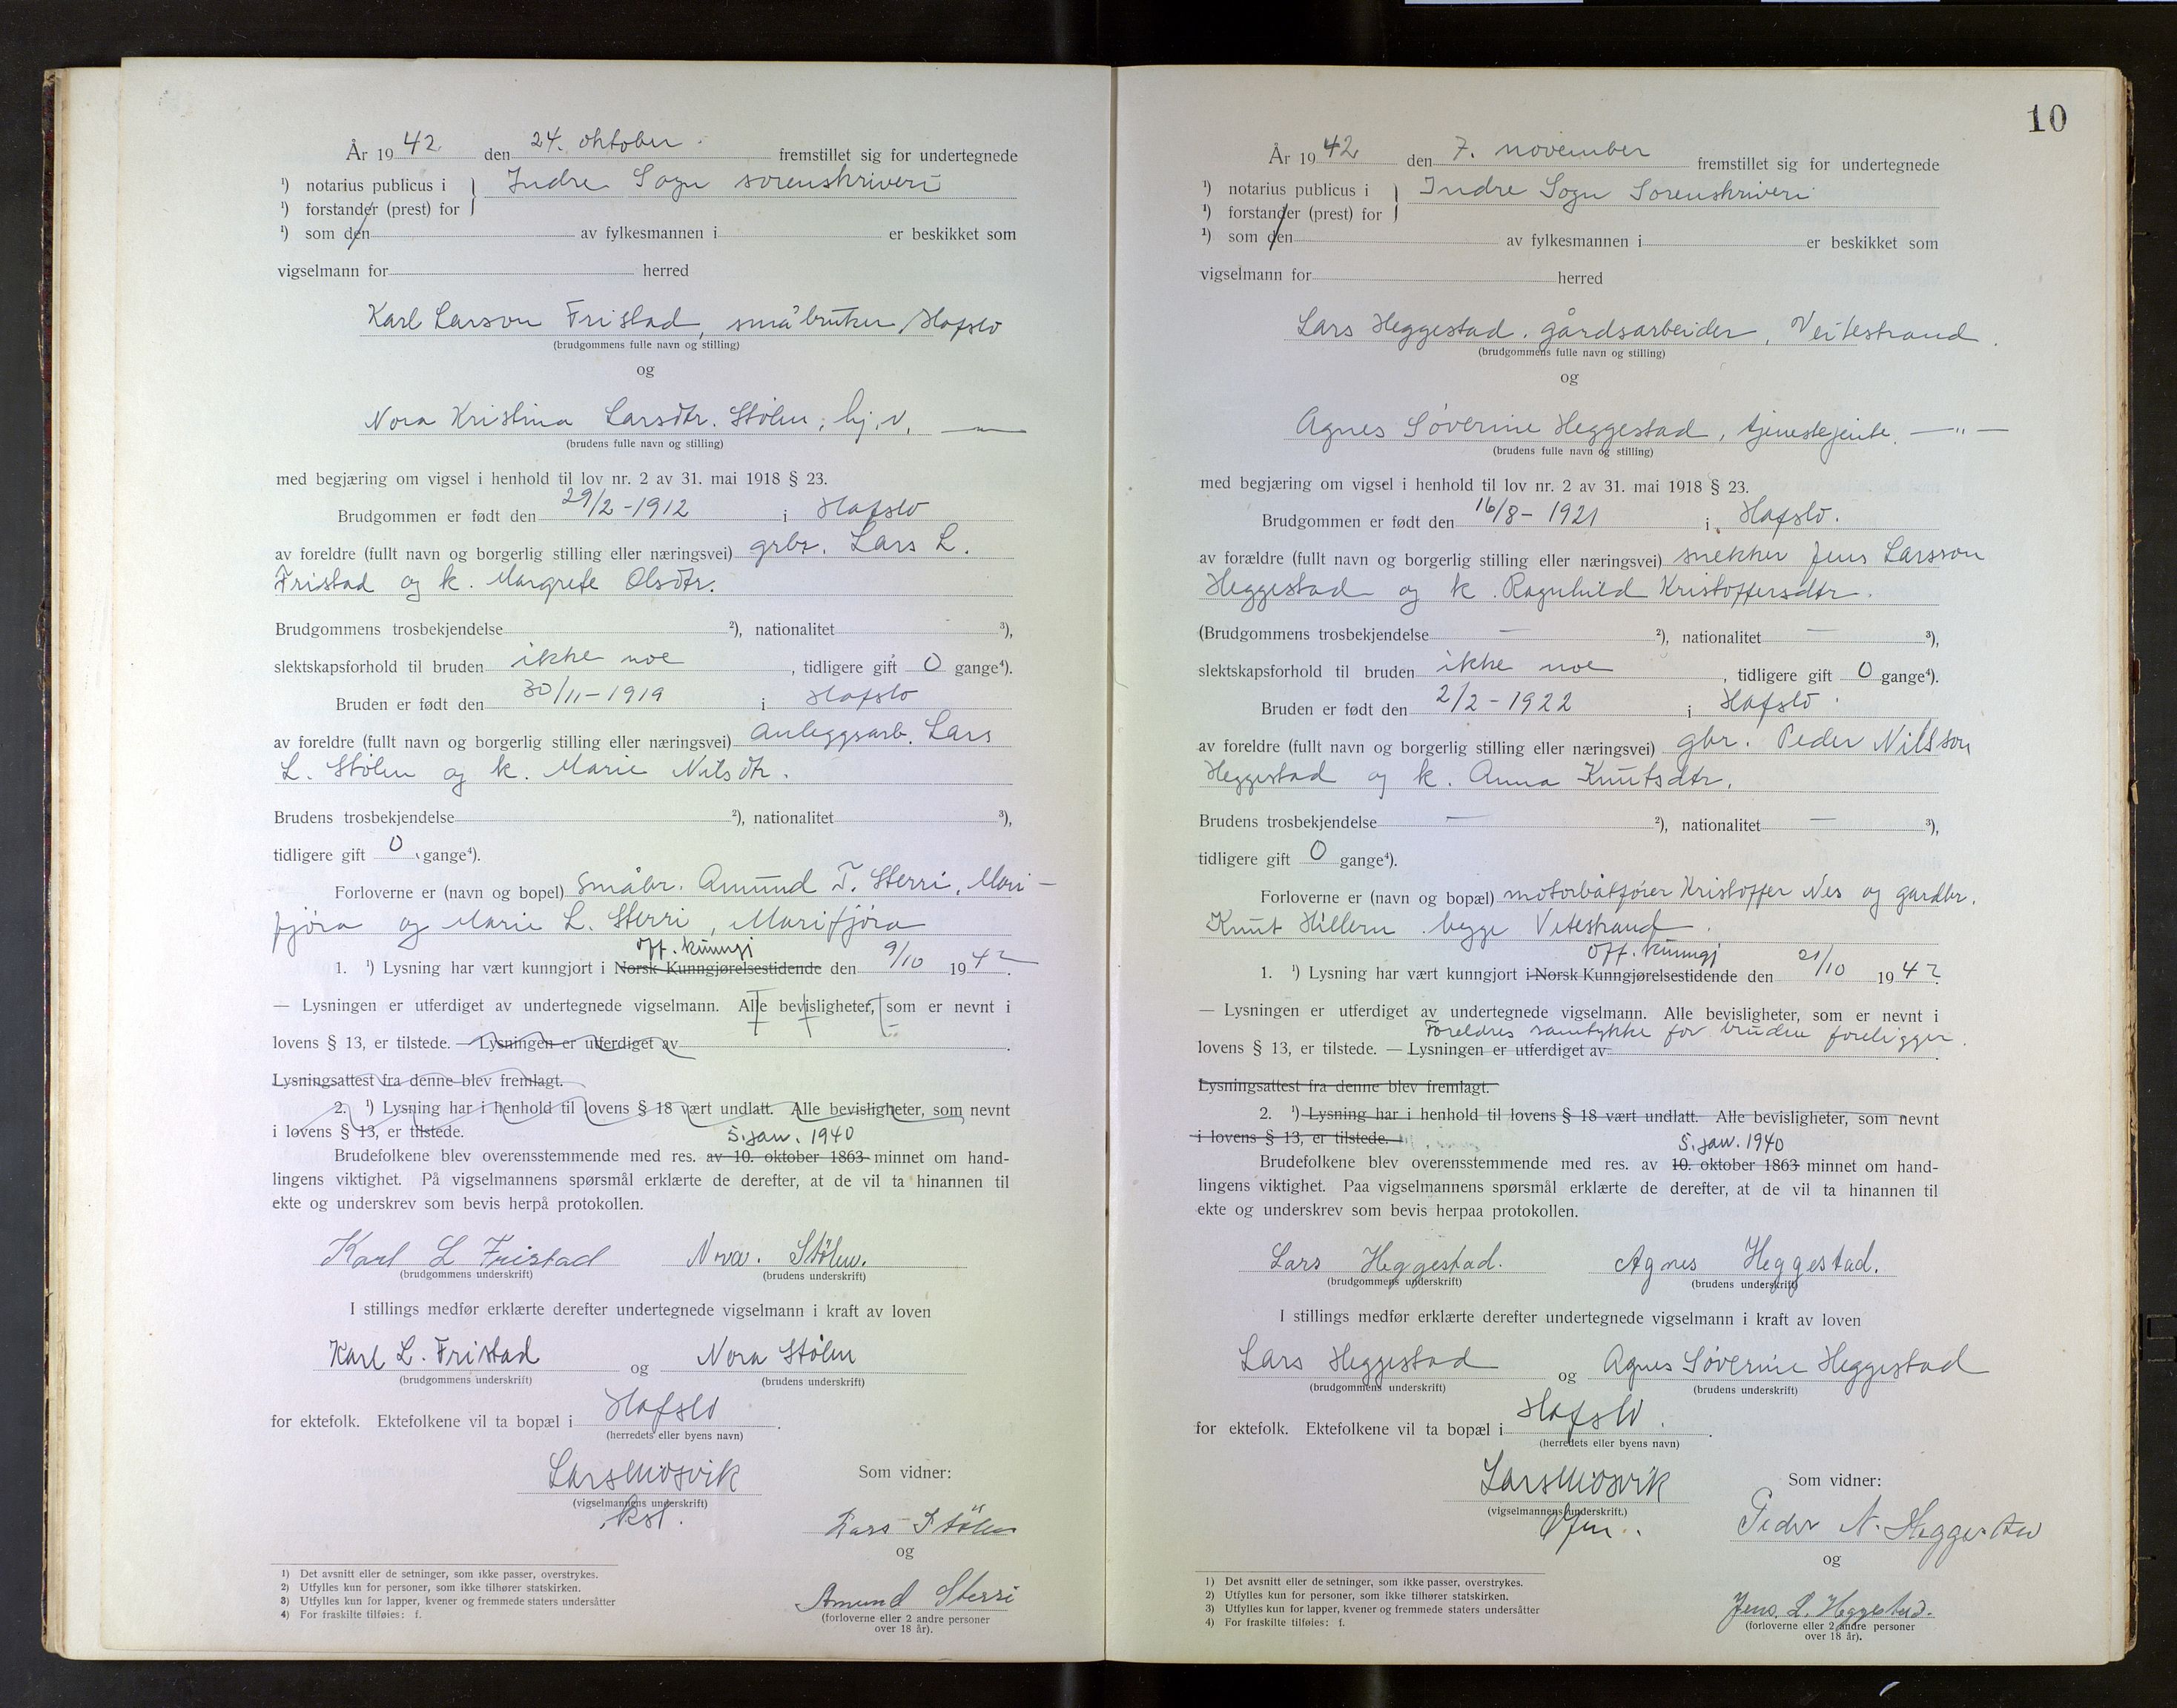 År 1942 den 24. oktober. fremstillet sig for undertegnede
¹) notarius publicus i } Indre Sogn sorenskriveri
¹) forstander (prest) for
¹) som den av fylkesmannen i er beskikket som
vigselmann for herred
Karl Larson Fristad, småbruker, Hafslo
(brudgommens fulle navn og stilling)
og
Nora Kristina Larsdtr. Stølen, hj.v. —"—
(brudens fulle navn og stilling)
med begjæring om vigsel i henhold til lov nr. 2 av 31. mai 1918 § 23.
Brudgommen er født den 29/2-1912 i Hafslo
av foreldre (fullt navn og borgerlig stilling eller næringsvei) grbr. Lars L.
Fristad og k. Margrete Olsdtr.
Brudgommens trosbekjendelse ²), nationalitet ³),
slektskapsforhold til bruden ikke noe, tidligere gift 0 gange⁴).
Bruden er født den 30/11-1919 i Hafslo
av foreldre (fullt navn og borgerlig stilling eller næringsvei) anleggsarb. Lars
L. Stølen og k. Marie Nilsdtr.
Brudens trosbekjendelse ²), nationalitet ³),
tidligere gift 0 gange⁴).
Forloverne er (navn og bopel) småbr. Amund T. Sterri, Mari-
fjöra og Marie L. Sterri, Marifjöra
off. kunngj
1. ¹) Lysning har vært kunngjort i Norsk Kunngjørelsestidende den 9/10 1942.
— Lysningen er utferdiget av undertegnede vigselmann. Alle bevisligheter, som er nevnt i
lovens § 13, er tilstede. — Lysningen er utferdiget av
Lysningsattest fra denne blev fremlagt.
2. ¹) Lysning har i henhold til lovens § 18 vært undlatt. Alle bevisligheter, som nevnt
i lovens § 13, er tilstede.
5. jan. 1940
Brudefolkene blev overensstemmende med res. av 10. oktober 1863 minnet om hand-
lingens viktighet. På vigselmannens spørsmål erklærte de derefter, at de vil ta hinannen til
ekte og underskrev som bevis herpå protokollen.
Karl L Fristad Nora. Stølen.
(brudgommens underskrift) (brudens underskrift)
I stillings medfør erklærte derefter undertegnede vigselmann i kraft av loven
Karl L. Fristad og Nora Stølen
(brudgommens underskrift) (brudens underskrift)
for ektefolk. Ektefolkene vil ta bopæl i Hafslo.
(herredets eller byens navn)
Lars Mosvik Som vidner:
(vigselmannens underskrift)
kst.
Lars Stølen
og
Amund Sterri
(forloverne eller 2 andre personer
over 18 år).
1) Det avsnitt eller de setninger, som ikke passer, overstrykes.
2) Utfylles kun for personer, som ikke tilhører statskirken.
3) Utfylles kun for lapper, kvener og fremmede staters undersåtter
4) For fraskilte tilføies: f.
10
År 1942 den 7. november fremstillet sig for undertegnede
¹) notarius publicus i } Indre Sogn Sorenskriveri
¹) forstander (prest) for
¹) som den av fylkesmannen i er beskikket som
vigselmann for herred
Lars Heggestad, gårdsarbeider, Veitestrand.
(brudgommens fulle navn og stilling)
og
Agnes Søverine Heggestad, tjenestejente. —"—
(brudens fulle navn og stilling)
med begjæring om vigsel i henhold til lov nr. 2 av 31. mai 1918 § 23.
Brudgommen er født den 16/8-1921 i Hafslo.
av forældre (fullt navn og borgerlig stilling eller næringsvei) snekker Jens Larsson
Heggestad og k. Ragnhild Kristoffersdtr.
(Brudgommens trosbekjendelse — ²), nationalitet — ³),
slektskapsforhold til bruden ikke noe, tidligere gift 0 gange⁴).
Bruden er født den 2/2-1922 i Hafslo.
av foreldre (fullt navn og borgerlig stilling eller næringsvei) gbr. Peder Nilsson
Heggestad og k. Anna Knutsdtr.
Brudens trosbekjendelse — ²), nationalitet — ³),
tidligere gift 0 gange⁴).
Forloverne er (navn og bopæl) motorbåtfører Kristoffer Nes og gardbr.
Knut Hillern begge Vetestrand.
off. kunngj
1. ¹) Lysning har vært kunngjort i Norsk Kunngjørelsestidende den 21/10 1942
— Lysningen er utferdiget av undertegnede vigselmann. Alle bevisligheter, som er nevnt i
Foreldres samtykke for bruden foreligger.
lovens § 13, er tilstede. — Lysningen er utferdiget av
Lysningsattest fra denne blev fremlagt.
2. ¹) Lysning har i henhold til lovens § 18 vært undlatt. Alle bevisligheter, som nevnt
i lovens § 13, er tilstede.
5. jan. 1940
Brudefolkene blev overensstemmende med res. av 10. oktober 1863 minnet om hand-
lingens viktighet. Paa vigselmannens spørsmål erklærte de derefter, at de vil ta hinannen til
ekte og underskrev som bevis herpaa protokollen.
Lars Heggestad. Agnes Heggestad.
(brudgommens underskrift) (brudens underskrift)
I stillings medfør erklærte derefter undertegnede vigselmann i kraft av loven
Lars Heggestad og Agnes Søverine Heggestad
(brudgommens underskrift) (brudens underskrift)
for ektefolk. Ektefolkene vil ta bopæl i Hafslo.
(herredets eller byens navn)
Lars Mosvik Som vidner:
(vigselmannens underskrift.)
Peder N. Heggestad
og
Jens L. Heggestad.
(forloverne eller 2 andre personer
over 18 år).
1) Det avsnitt eller de setninger, som ikke passer, overstrykes.
2) Utfylles kun for personer, som ikke tilhører statskirken.
3) Utfylles kun for lapper, kvener og fremmede staters undersåtter
4) For fraskilte tilføies: f.